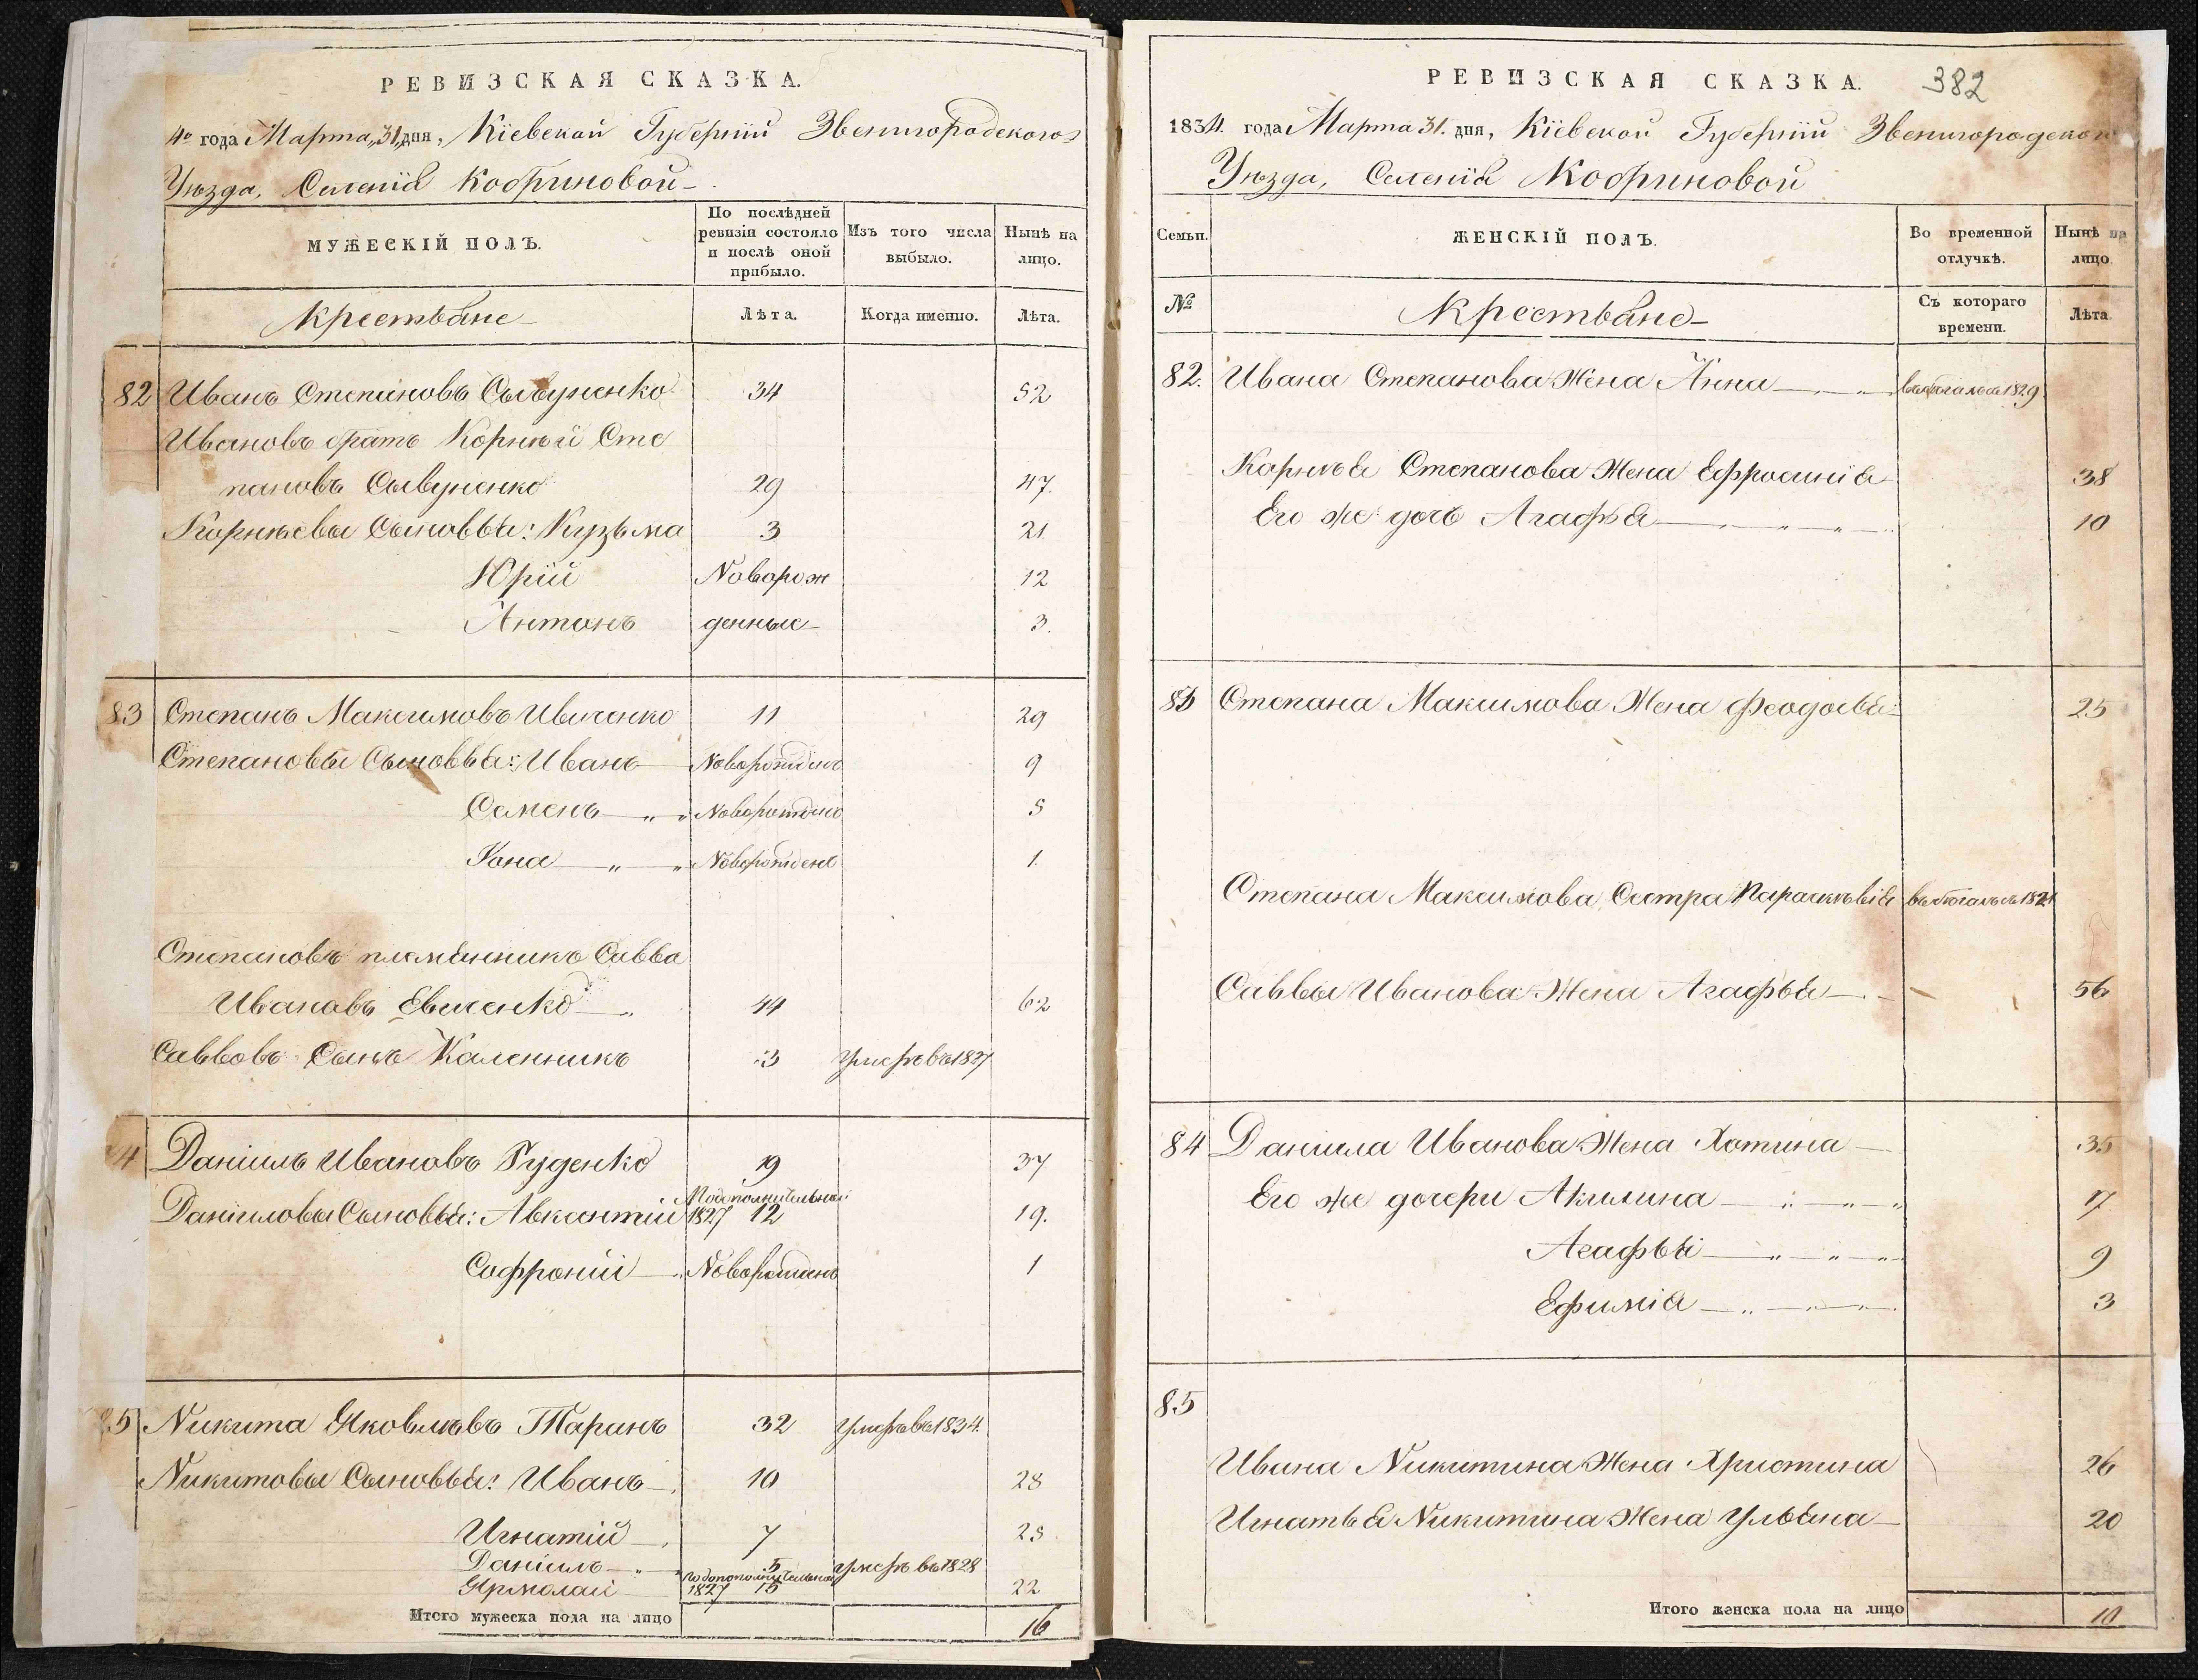 РЕВИЗСКАЯ СКАЗКА.
4го года Марта „31„ дня, Кіевской Губерніи Звенигородскаго
Уѣзда, Селенія Кобриновой
МУЖЕСКІЙ ПОЛЪ.
По послѣдней ревизіи состояло и послѣ оной прибыло.
Изъ того числа выбыло.
Нынѣ на лицо.
Крестьяне
Лѣта.
Когда именно.
Лѣта.
82 Иванъ Степановъ 34 52
Ивановъ братъ Корнѣй Сте
пановъ 29 47.
Корнѣевы Сыновья: Кузьма 3 21
Юрій Новорож 12
Антонъ денные 3.
83 Степанъ Максимовъ Ивченко 11 29
Степановы Сыновья: Иванъ Новорожденъ 9
Семенъ „ „ Новорожденъ 5
Іона „ „ Новорожденъ 1.
Степановъ племянникъ Савва
Ивановъ 44 62
Саввовъ Сынъ Каленникъ 3 умеръ въ 1827
4 Даніилъ Ивановъ Руденко 19 37
Даніиловы Сыновья: Авксентій По дополнительной 1827 12 19.
Софроній Новорожденъ 1
85 Никита Яковлевъ Таранъ 32 умеръ въ 1834.
Никитовы Сыновья: Иванъ 10 28
Игнатій 7 25
Даніилъ „ 5 умеръ въ 1828
Ярмолай по дополнительной 1827 15 22
Итого мужеска пола на лицо 16
РЕВИЗСКАЯ СКАЗКА. 382
1834. года Марта 31. дня, Кіевской Губерніи Звенигородскаго
Уѣзда, Селенія Кобриновой
Семьи.
ЖЕНСКІЙ ПОЛЪ.
Во временной отлучкѣ.
Нынѣ на лицо
№
Крестьяне
Съ котораго времени.
Лѣта
82. Ивана Степанова Жена Анна 1829
Корнѣя Степанова Жена Ефросинія 38
Его же дочь Агафья 10
83 Степана Максимова Жена Феодосья 25
Степана Максимова Сестра Параскевія
Саввы Иванова Жена Агафья 56
84 Даніила Иванова Жена Хотина 35
Его же дочери Акилина 17
Агафья 9
Ефимія 3
85
Ивана Никитина Жена Христина 26
Игнатья Никитина Жена Ульяна 20
Итого женска пола на лицо 10